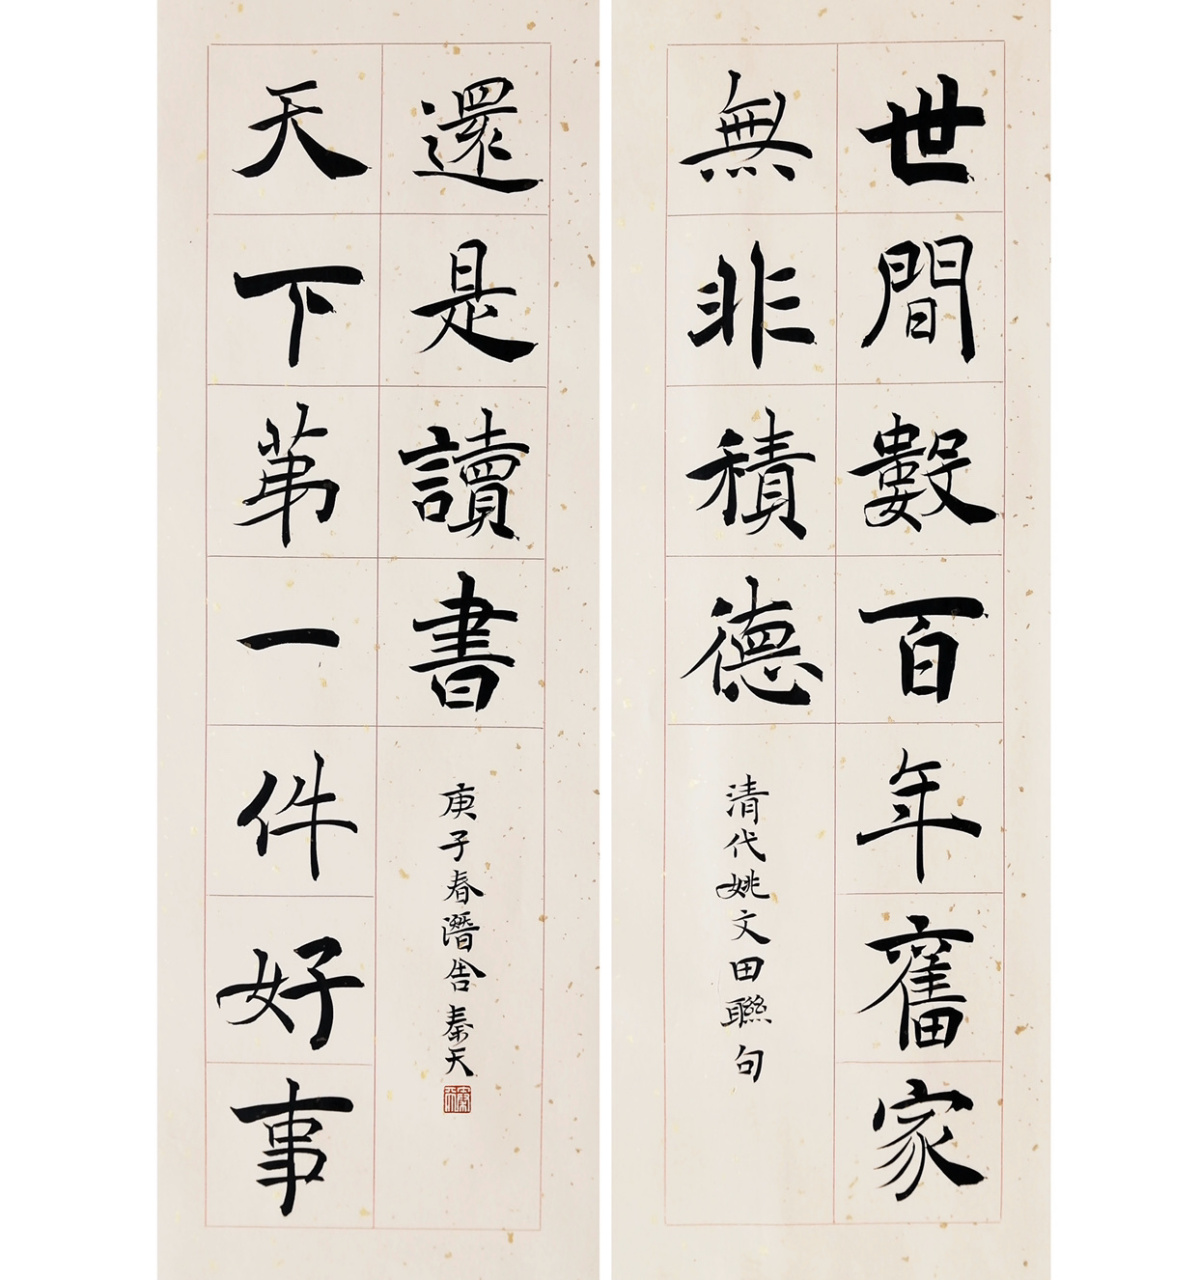 世間數百年舊家
無非積德
清代姚文田聯句
天下第一件好事
還是讀書
庚子春潛舍秦天